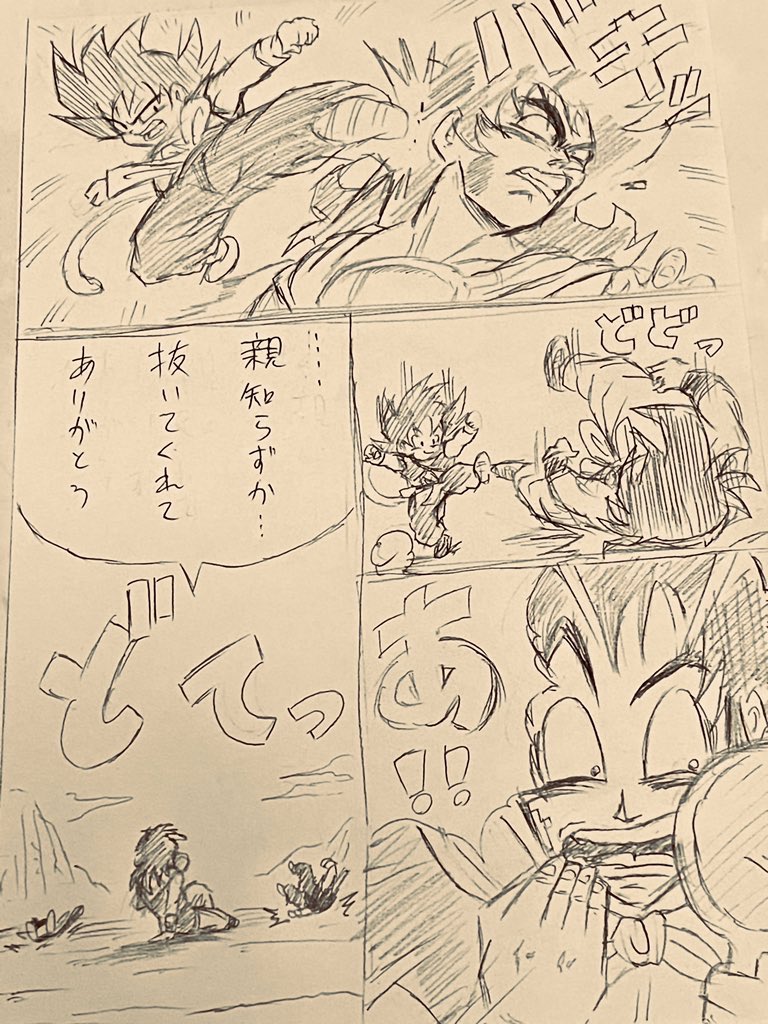 バキッ
どどっ
あ!!
……
親知らずか…
抜いてくれて
ありがとう
どてっ